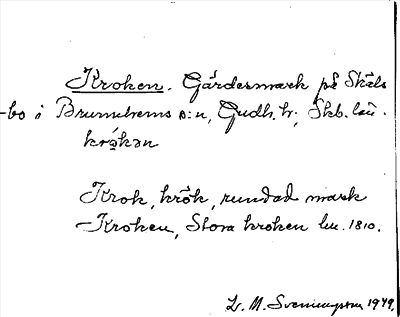 Kroken. Gärdesmark på Skäls
-bo i Brunnhems s:n, Gudh. hr; Skb. län.
krókən
Krok, krök, rundad mark
Kroken, Stora kroken lm. 1810.
L. M. Svenungsson 1949.